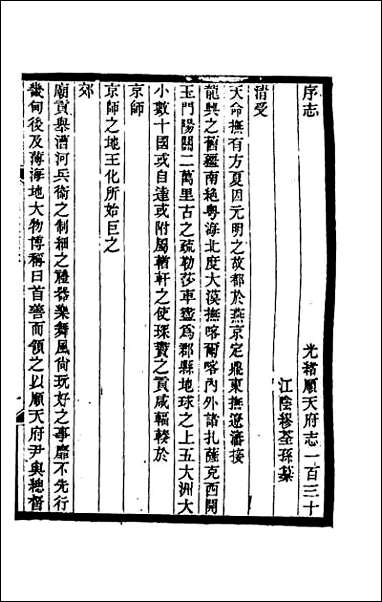 序志　光緒順天府志一百三十
江陰繆荃孫纂
清受
天命撫有方夏因元明之故都於燕京定鼎東撫遼瀋接
龍興之舊疆南絶粵海北度大漠撫喀爾喀內外諸扎薩克西開
玉門陽關二萬里古之疏勒莎車盡爲郡縣地球之上五大洲大
小數十國或自達或附屬輶軒之使琛賮之貢咸輻輳於
京師
京師之地王化所始巨之
郊
廟貢舉漕河兵衞之制細之禮器樂舞風尙玩好之事靡不先行
畿甸後及薄海地大物博稱曰首善而領之以順天府尹與總督